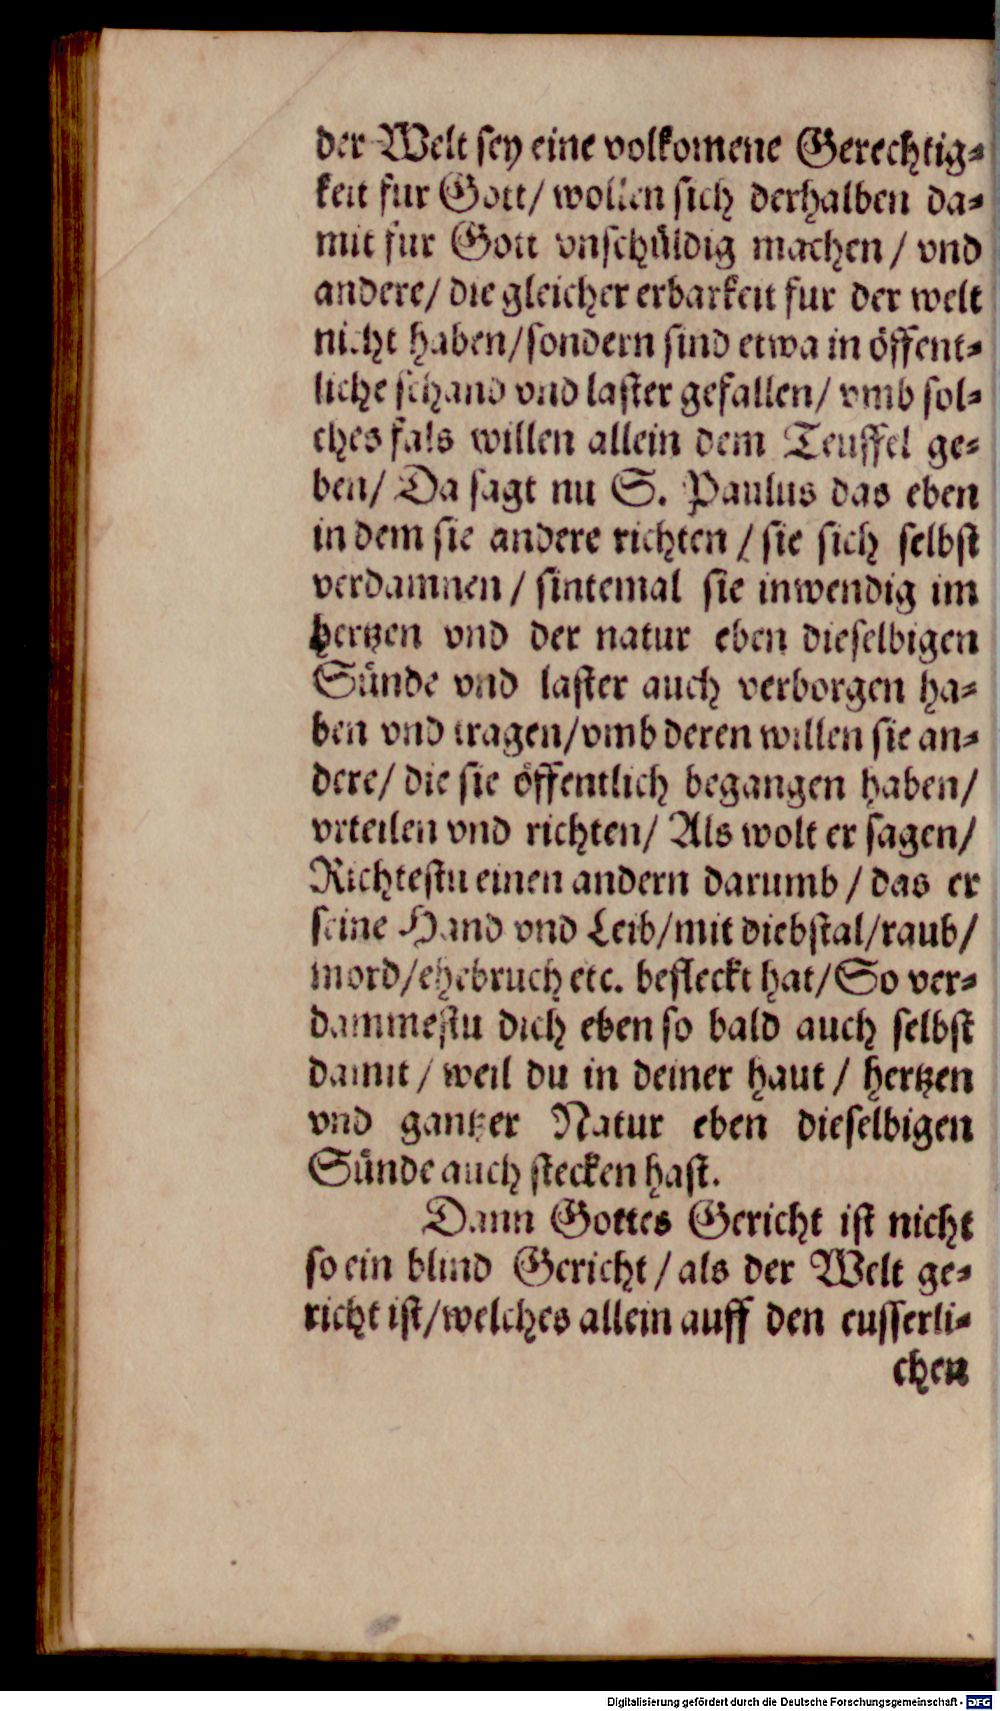 der Welt sey eine volkomene Gerechtig⸗
keit fur Gott/ wollen sich derhalben da⸗
mit fur Gott vnschüldig machen/ vnd
andere/ die gleicher erbarkeit fur der welt
nicht haben/ sondern sind etwa in öffent⸗
liche schand vnd laster gefallen/ vmb sol⸗
ches fals willen allein dem Teuffel ge⸗
ben/ Da sagt nu S. Paulus das eben
in dem sie andere richten/ sie sich selbst
verdamnen/ sintemal sie inwendig im
hertzen vnd der natur eben dieselbigen
Sünde vnd laster auch verborgen ha⸗
ben vnd tragen/ vmb deren willen sie an⸗
dere/ die sie öffentlich begangen haben/
vrteilen vnd richten/ Als wolt er sagen/
Richtestu einen andern darumb/ das er
seine Hand vnd Leib/ mit diebstal/ raub/
mord/ ehebruch etc. befleckt hat/ So ver⸗
dammestu dich eben so bald auch selbst
damit/ weil du in deiner haut/ hertzen
vnd gantzer Natur eben dieselbigen
Sünde auch stecken hast.
Dann Gottes Gericht ist nicht
so ein blind Gericht/ als der Welt ge⸗
richt ist/ welches allein auff den eusserli⸗
chen
Digitalisierung gefördert durch die Deutsche Forschungsgemeinschaft - DFG